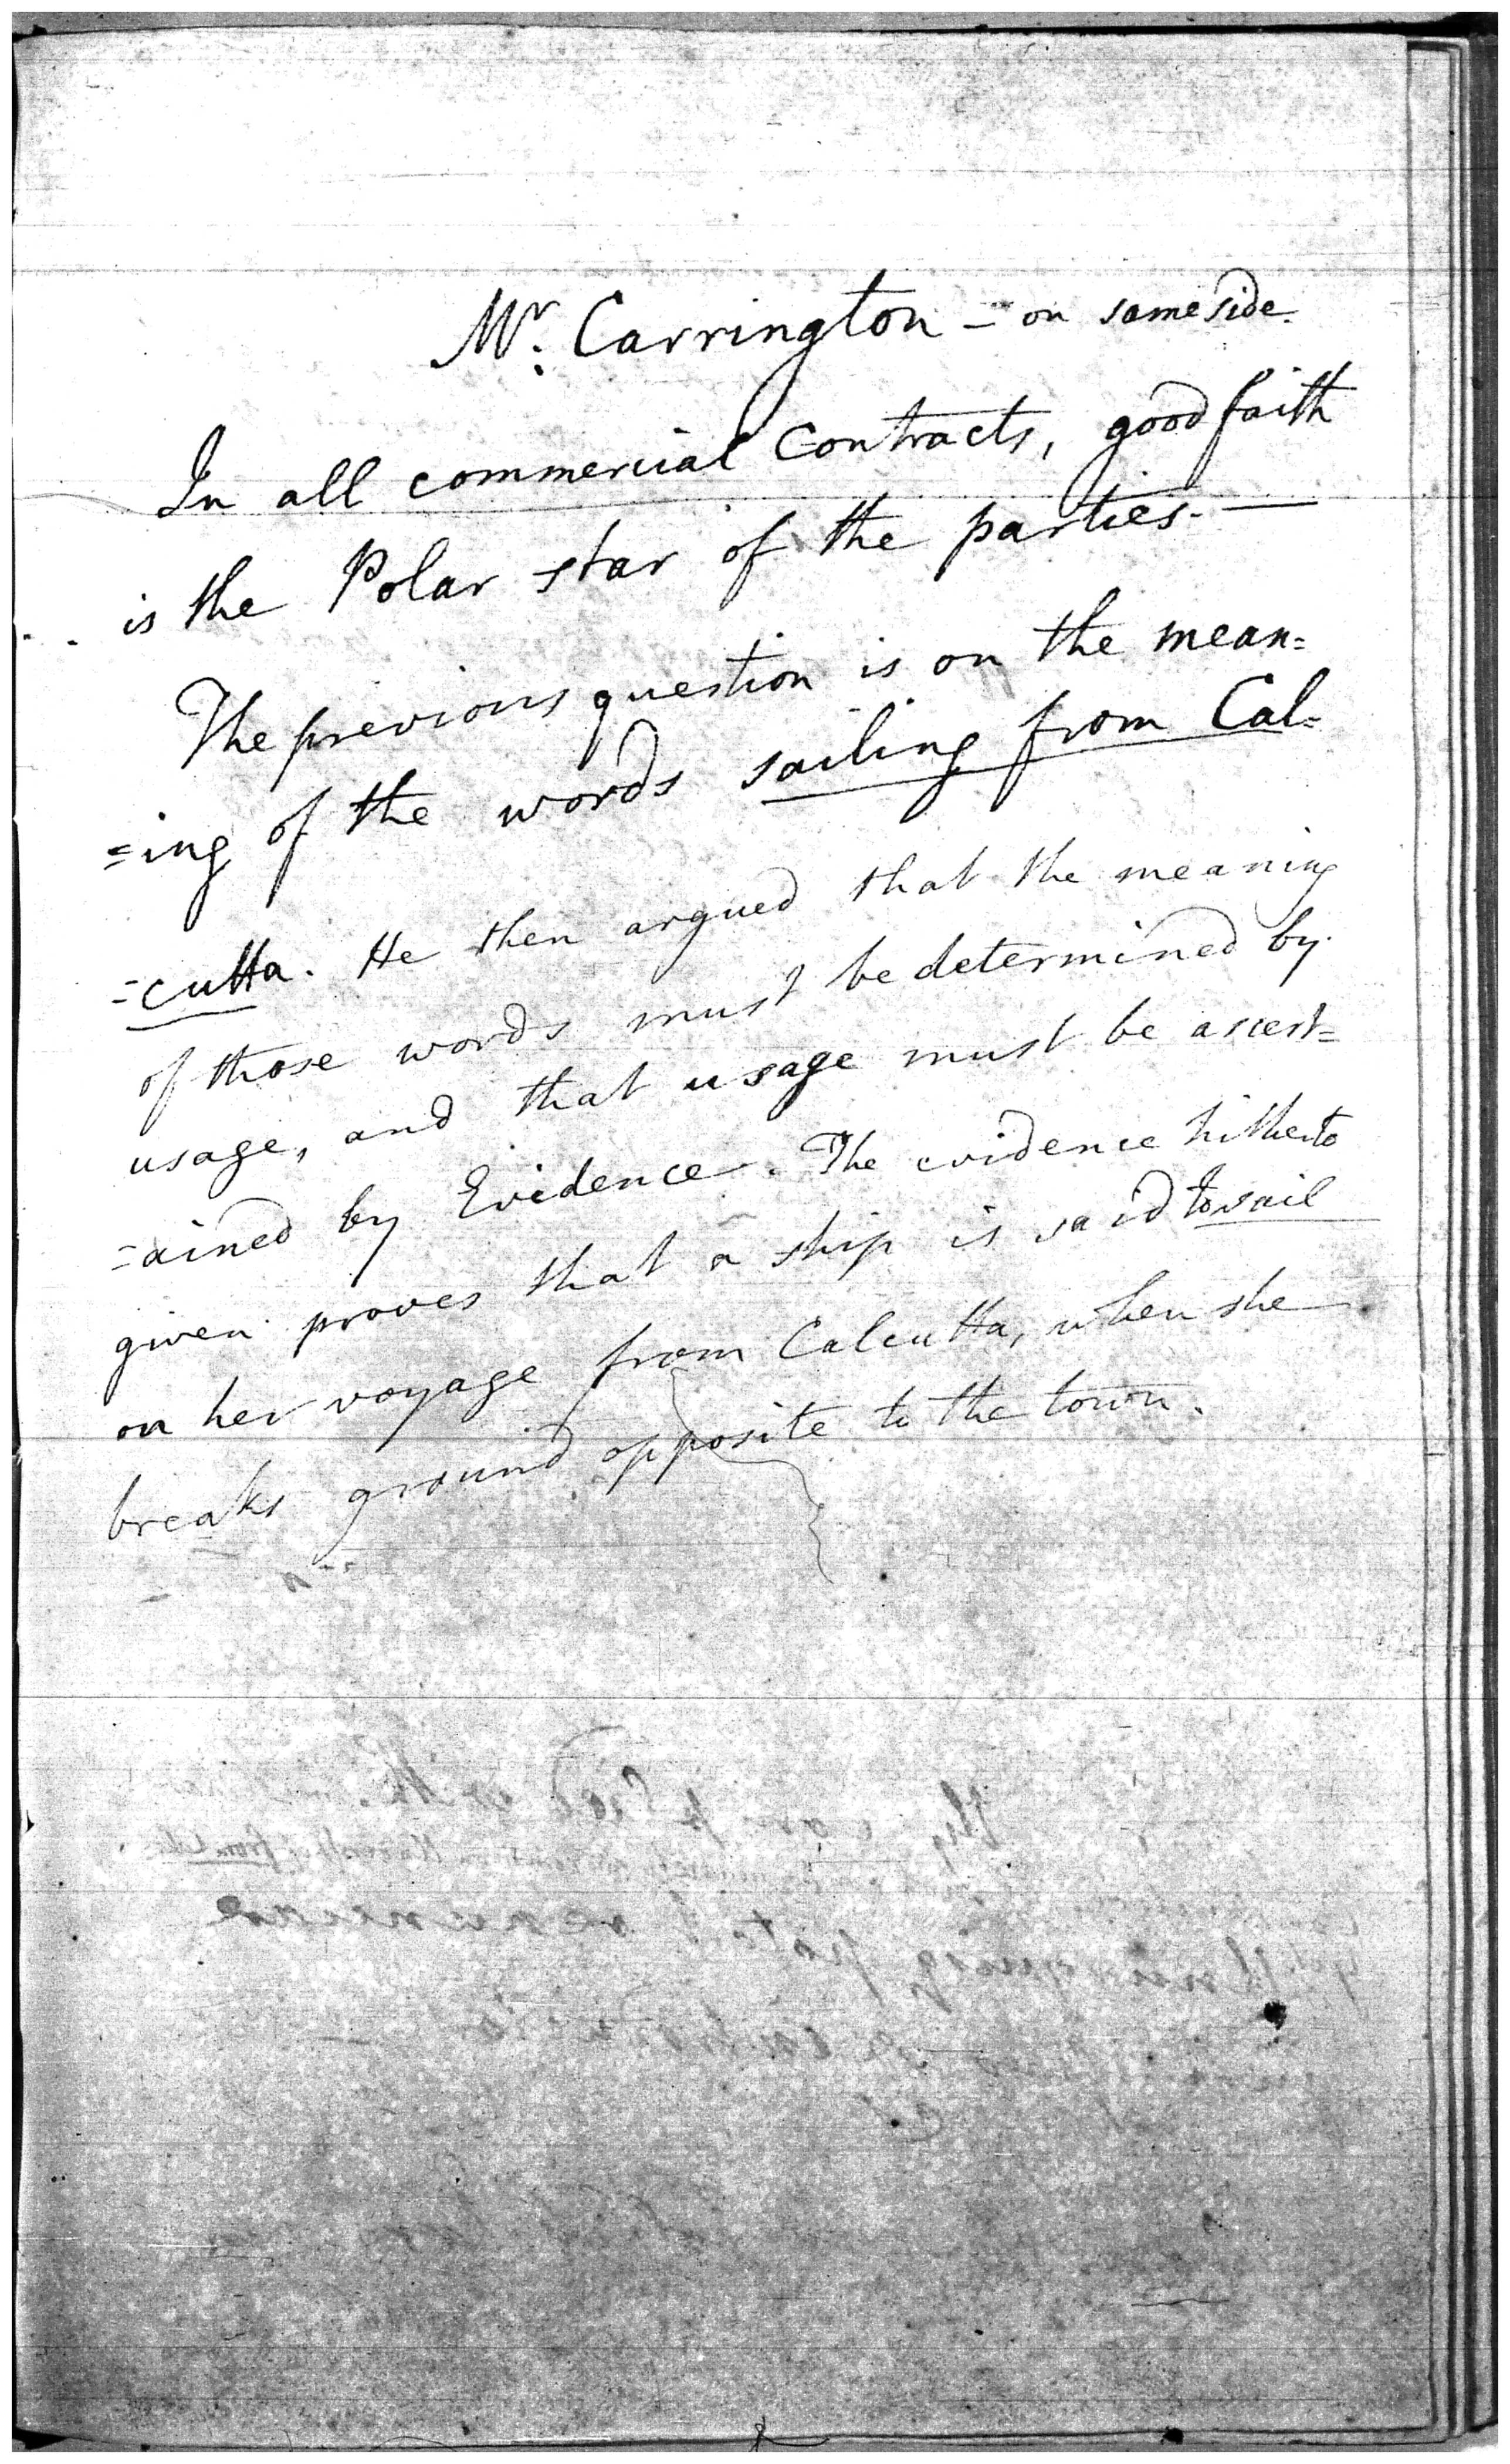 Mr. Carrington - on same side.
In all commercial Contracts, good faith
is the Polar star of the parties. —
The previous question is on the mean=
=ing of the words sailing from Cal=
=cutta. He then argued that the meaning
of those words must be determined by
usage, and that usage must be ascert=
=ained by Evidence. The evidence hitherto
given proves that a ship is said to sail
on her voyage from Calcutta, when she
breaks ground opposite to the town.